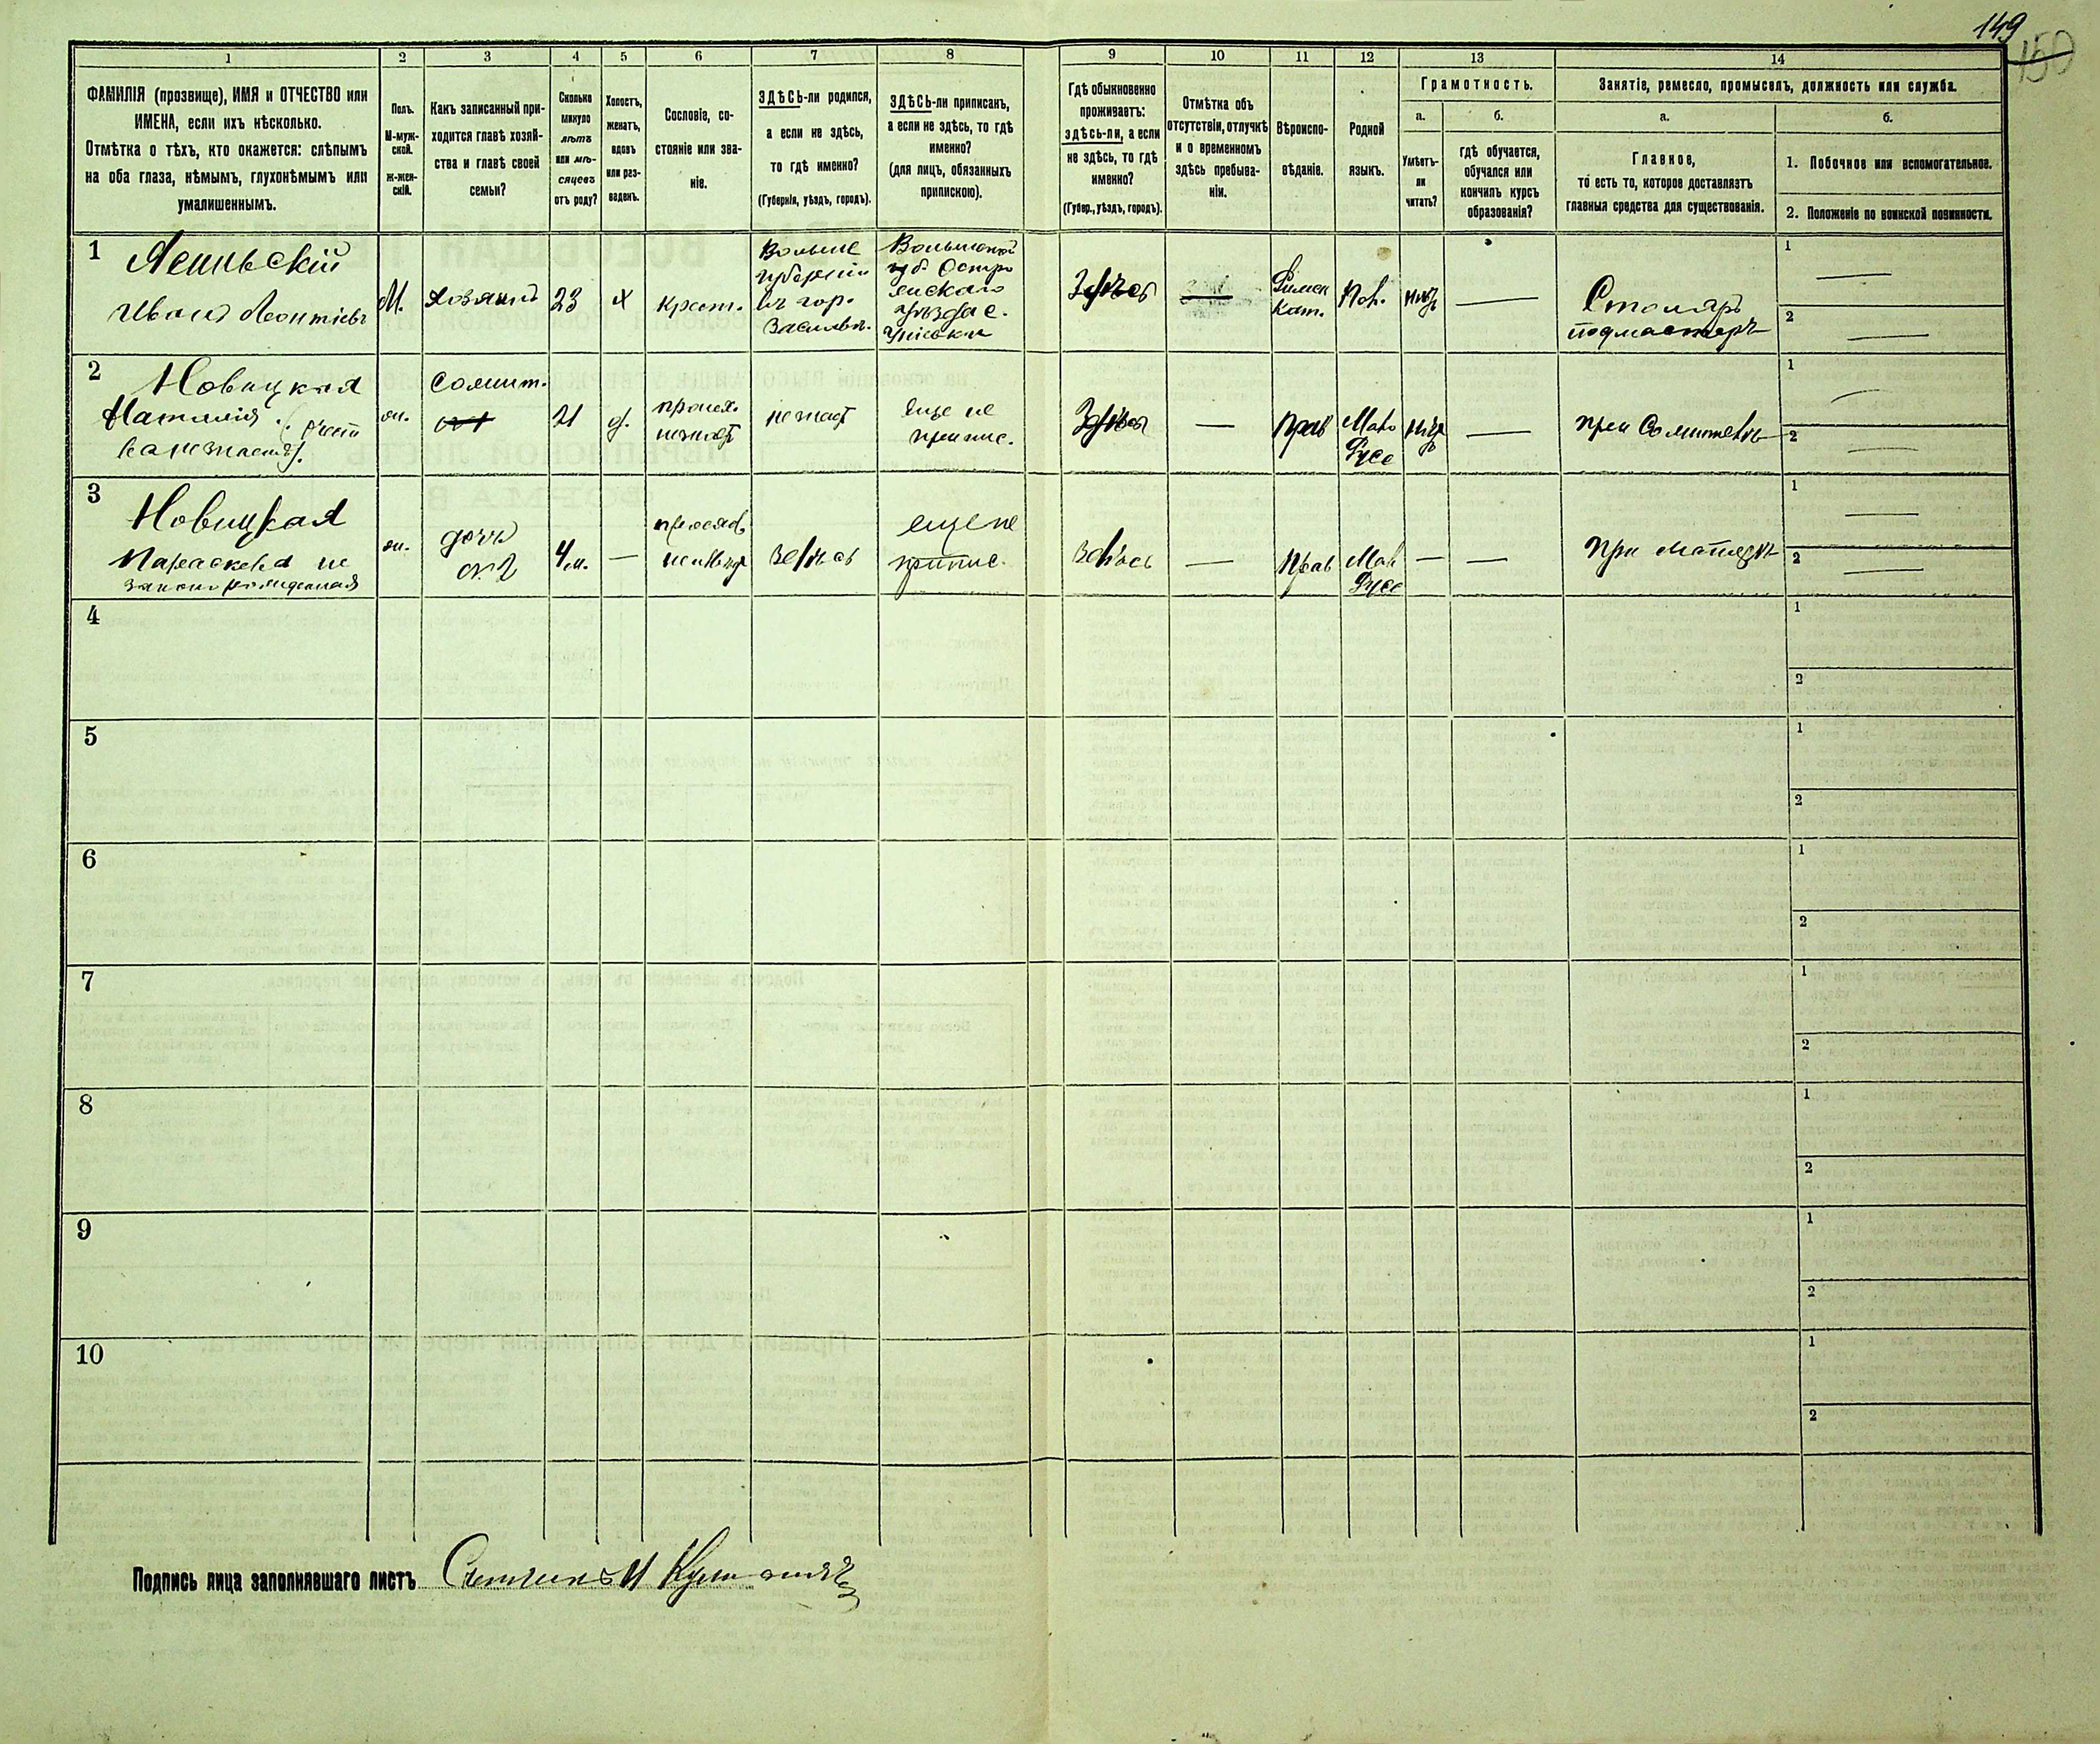 149
150
1
2
3
4
5
6
7
8
9
10
11
12
13
14
ФАМИЛІЯ (прозвище), ИМЯ и ОТЧЕСТВО или
ИМЕНА, если ихъ нѣсколько.
Отмѣтка о тѣхъ, кто окажется: слѣпымъ
на оба глаза, нѣмымъ, глухонѣмымъ или
умалишеннымъ.
Полъ.
М-муж-
ской.
ж-жен-
скій.
Какъ записанный при-
ходится главѣ хозяй-
ства и главѣ своей
семьи?
Сколько
минуло
лѣтъ
или мѣ-
сяцевъ
отъ роду?
Холостъ,
женатъ,
вдовъ
или раз-
веденъ.
Сословіе, со-
стояніе или зва-
ніе.
ЗДѢСЬ-ли родился,
а если не здѣсь,
то гдѣ именно?
(Губернія, уѣздъ, городъ).
ЗДѢСЬ-ли приписанъ,
а если не здѣсь, то гдѣ
именно?
(для лицъ, обязанныхъ
припискою).
Гдѣ обыкновенно
проживаетъ:
здѣсь-ли, а если
не здѣсь, то гдѣ
именно?
(Губер., уѣздъ, городъ).
Отмѣтка объ
отсутствіи, отлучкѣ
и о временномъ
здѣсь пребыва-
ніи.
Вѣроиспо-
вѣданіе.
Родной
языкъ.
Грамотность.
а.
Умѣетъ-
ли
читать?
б.
гдѣ обучается,
обучался или
кончилъ курсъ
образованія?
Занятіе, ремесло, промыселъ, должность или служба.
а.
Главное,
то есть то, которое доставляетъ
главныя средства для существованія.
б.
1. Побочное или вспомогательное.
2. Положеніе по воинской повинности.
1
Иванъ Леонтіевъ
М.
хозяинъ
23
х
крест.
губерніи
въ гор.
Заславл.
Волынской
губ. Остро
уѣзда с.
Здѣсь
Римск
Кат.
Пол.
нѣтъ
Столяръ
подмастеръ
1
2
2
Новицкая
Наталія
сожит.
21
д.
незнает
еще не
припис.
Здѣсь
Прав
Мало
Русс
нѣтъ
при Сожителѣ
1
2
3
Новицкая
Параскева не
законорожденная
дочь
4 м.
Здѣсь
еще не
припис.
Здѣсь
Прав
Мал
Русс
При Матери
1
2
4
1
2
5
1
2
6
1
2
7
1
2
8
1
2
9
1
2
10
1
2
Подпись лица заполнявшаго листъ Счетчикъ И